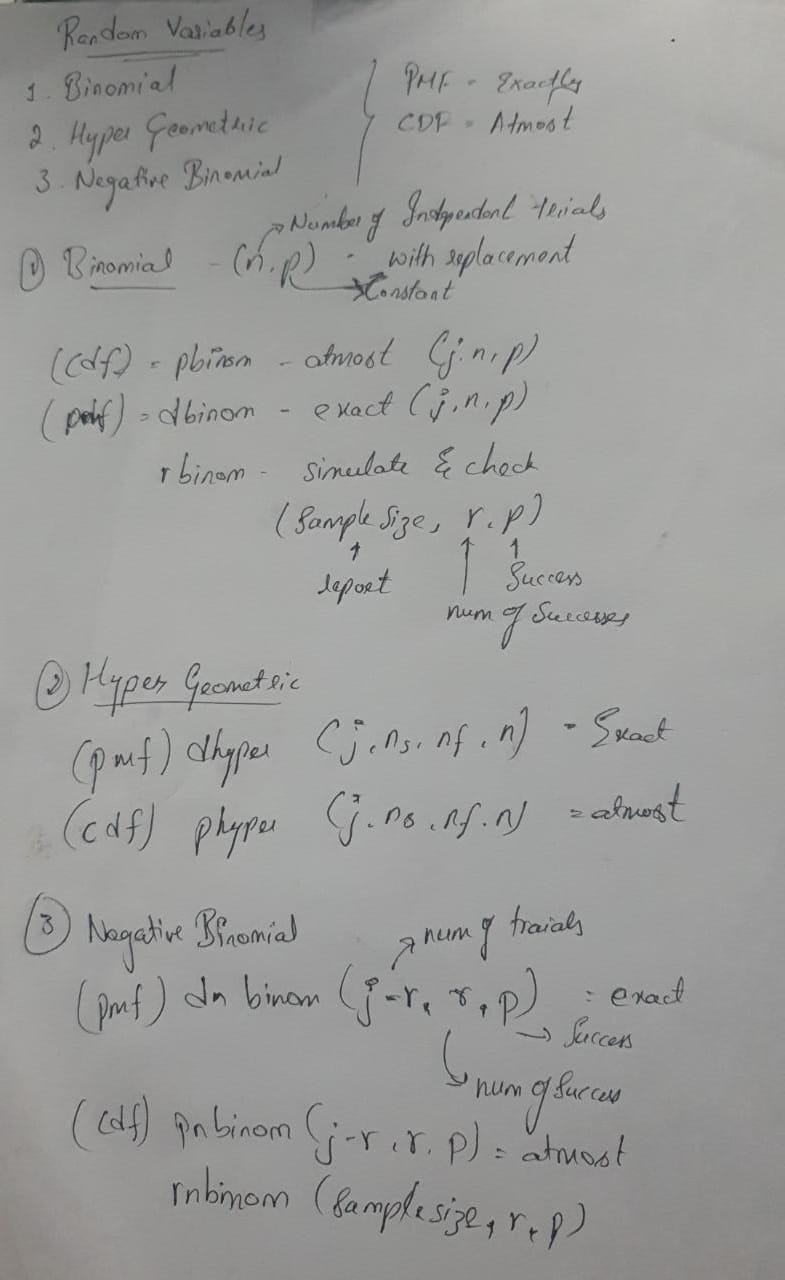 Random Variables
1. Binomial
2. Hyper Geometric
3. Negative Binomial
PMF - Exactly
CDF - Atmost
Number of Independent terials
① Binomial - (n,p) - with replacement
Constant
(cdf) = pbinom - atmost (j,n,p)
(pdf) = dbinom - exact (j,n,p)
rbinom - simulate & check
(Sample size, r,p)
Success
num of Successes
② Hyper Geometric
(pmf) dhyper (j, ns, nf, n) - Exact
(cdf) phyper (j, ns, nf, n) = atmost
③ Negative Binomial
num of traials
(pmf) dn binom (j-r, r, p) = exact
Success
num of Success
(cdf) pnbinom (j-r, r, p) = atmost
rnbinom (Sample size, r, p)